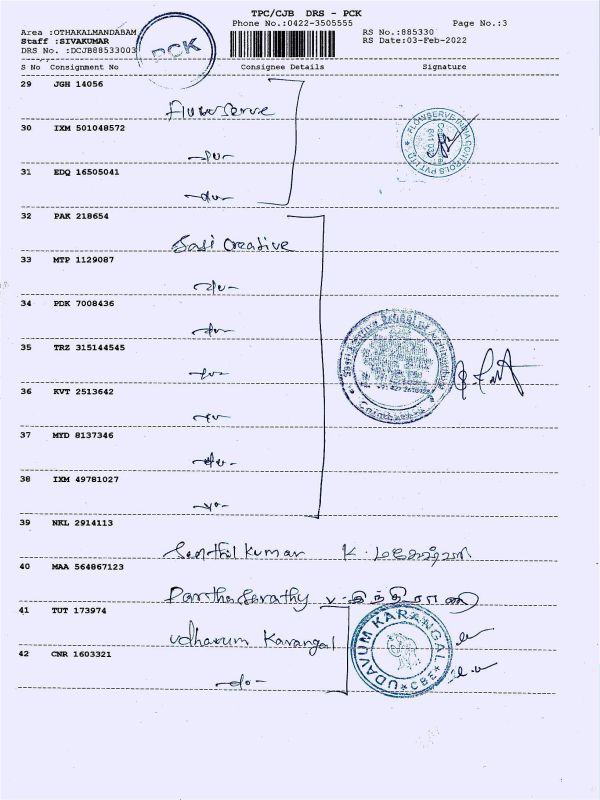 TPC/CJB DRS - PCK
Phone No.:0422-3505555
Page No.:3
Area :OTHAKALMANDABAM
RS No.:885330
Staff :SIVAKUMAR
RS Date:03-Feb-2022
DRS No. :DCJB88533003
PCK
S No Consignment No Consignee Details Signature
29 JGH 14056
Flowserve
30 IXM 501048572
-do-
31 EDQ 16505041
-do-
FLOWSERVE INDIA CONTROLS PVT LTD
32 PAK 218654
Sasi Creative
33 MTP 1129087
-do-
34 PDK 7008436
-do-
35 TRZ 315144545
-do-
36 KVT 2513642
-do-
37 MYD 8137346
-do-
38 IXM 49781027
-do-
Sasi Creative School of Architecture
Coimbatore
39 NKL 2914113
Senthil kumar K. மகேஷ்வரி
40 MAA 564867123
Partha Sarathy v. இந்திராணி
41 TUT 173974
Udhavum Karangal
42 CNR 1603321
-do-
UDAVUM KARANGAL
CBE